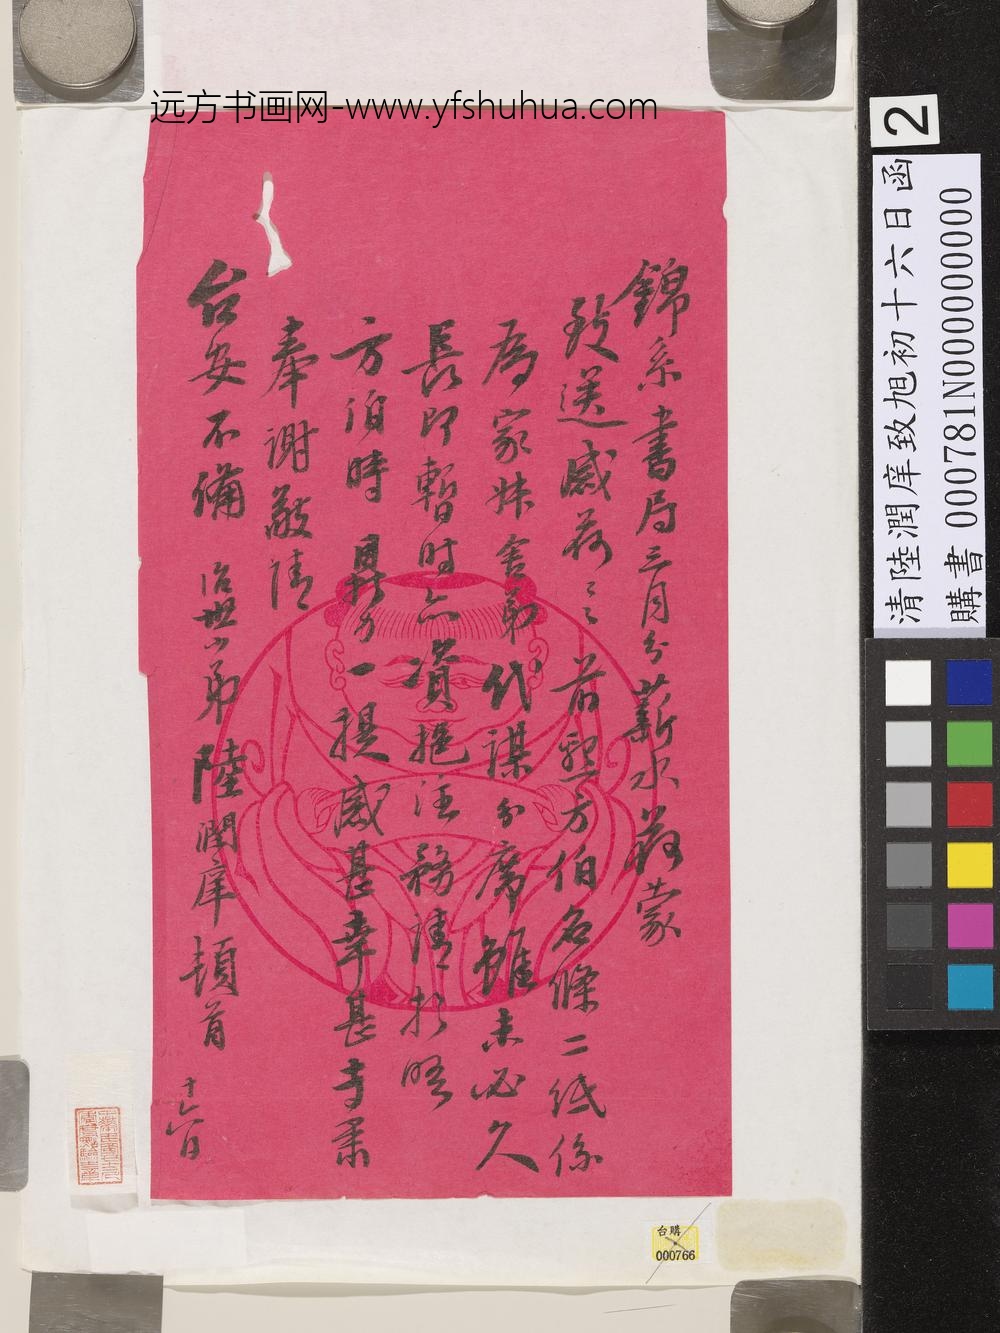 远方书画网-www.yfshuhua.com
錦系書局三月分薪水荷蒙
致送感荷之之前懇方伯名條二紙係
為家妹舍弟代謀分席雖未必久
長即暫時亦資挹注務請於晤
方伯時鼎力一提感甚幸甚專肅
奉謝敬請
台安不備 治世小弟 陸潤庠頓首 十六日
清陸潤庠致旭初十六日函
購書 000781N000000000
2
台購
000766